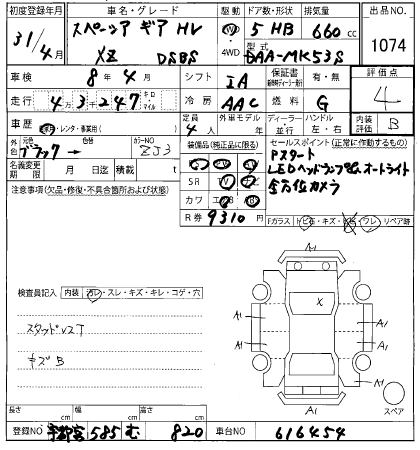 初度登録年月 車名・グレード 駆動 ドア数・形状 排気量 出品NO.
31/4月 スペーシア ギア HV 2WD 5 HB 660cc 1074
XZ DSBS 4WD 型式 DAA-MK53S
車検 8年 4月 シフト IA 保証書 有・無 評価点
走行 4万3千247 キロ マイル 冷房 AAC 燃料 G 4
車歴 自家用・レンタ・事業用( ) 定員 4人 外車モデル 年 ディーラー 並行 ハンドル 左・右 内装 B
外色 元色 ブラック 色替 カラーNO ZJ3 装備品(純正品に限る) セールスポイント(正常に作動するもの)
名義変更期限 月 日迄 積載 t
Pスタート
LEDヘッドランプ オートライト
全方位カメラ
注意事項(欠品・修復・不具合箇所および状態) SR TV ナビ
カワ エアB
R券 9310円
Fガラス トビ石・キズ・ ・ワレ リペア跡
検査員記入 内装 ヨゴレ・スレ・キズ・キレ・コゲ・穴
A1
X
A1 A1
A1 A1
A1
スペア
スタッドレスT
キズ B
長さ cm 幅 cm 高さ cm
登録NO 宇都宮 585 む 820 車台NO 616454